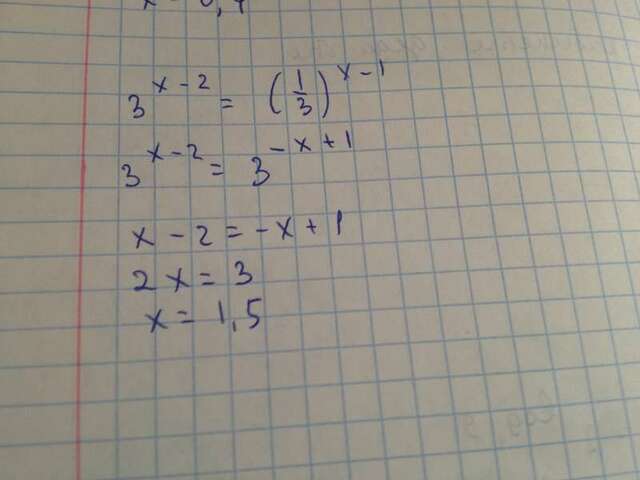 3^{x-2} = (1/3)^{x-1}
3^{x-2} = 3^{-x+1}
x - 2 = -x + 1
2x = 3
x = 1,5